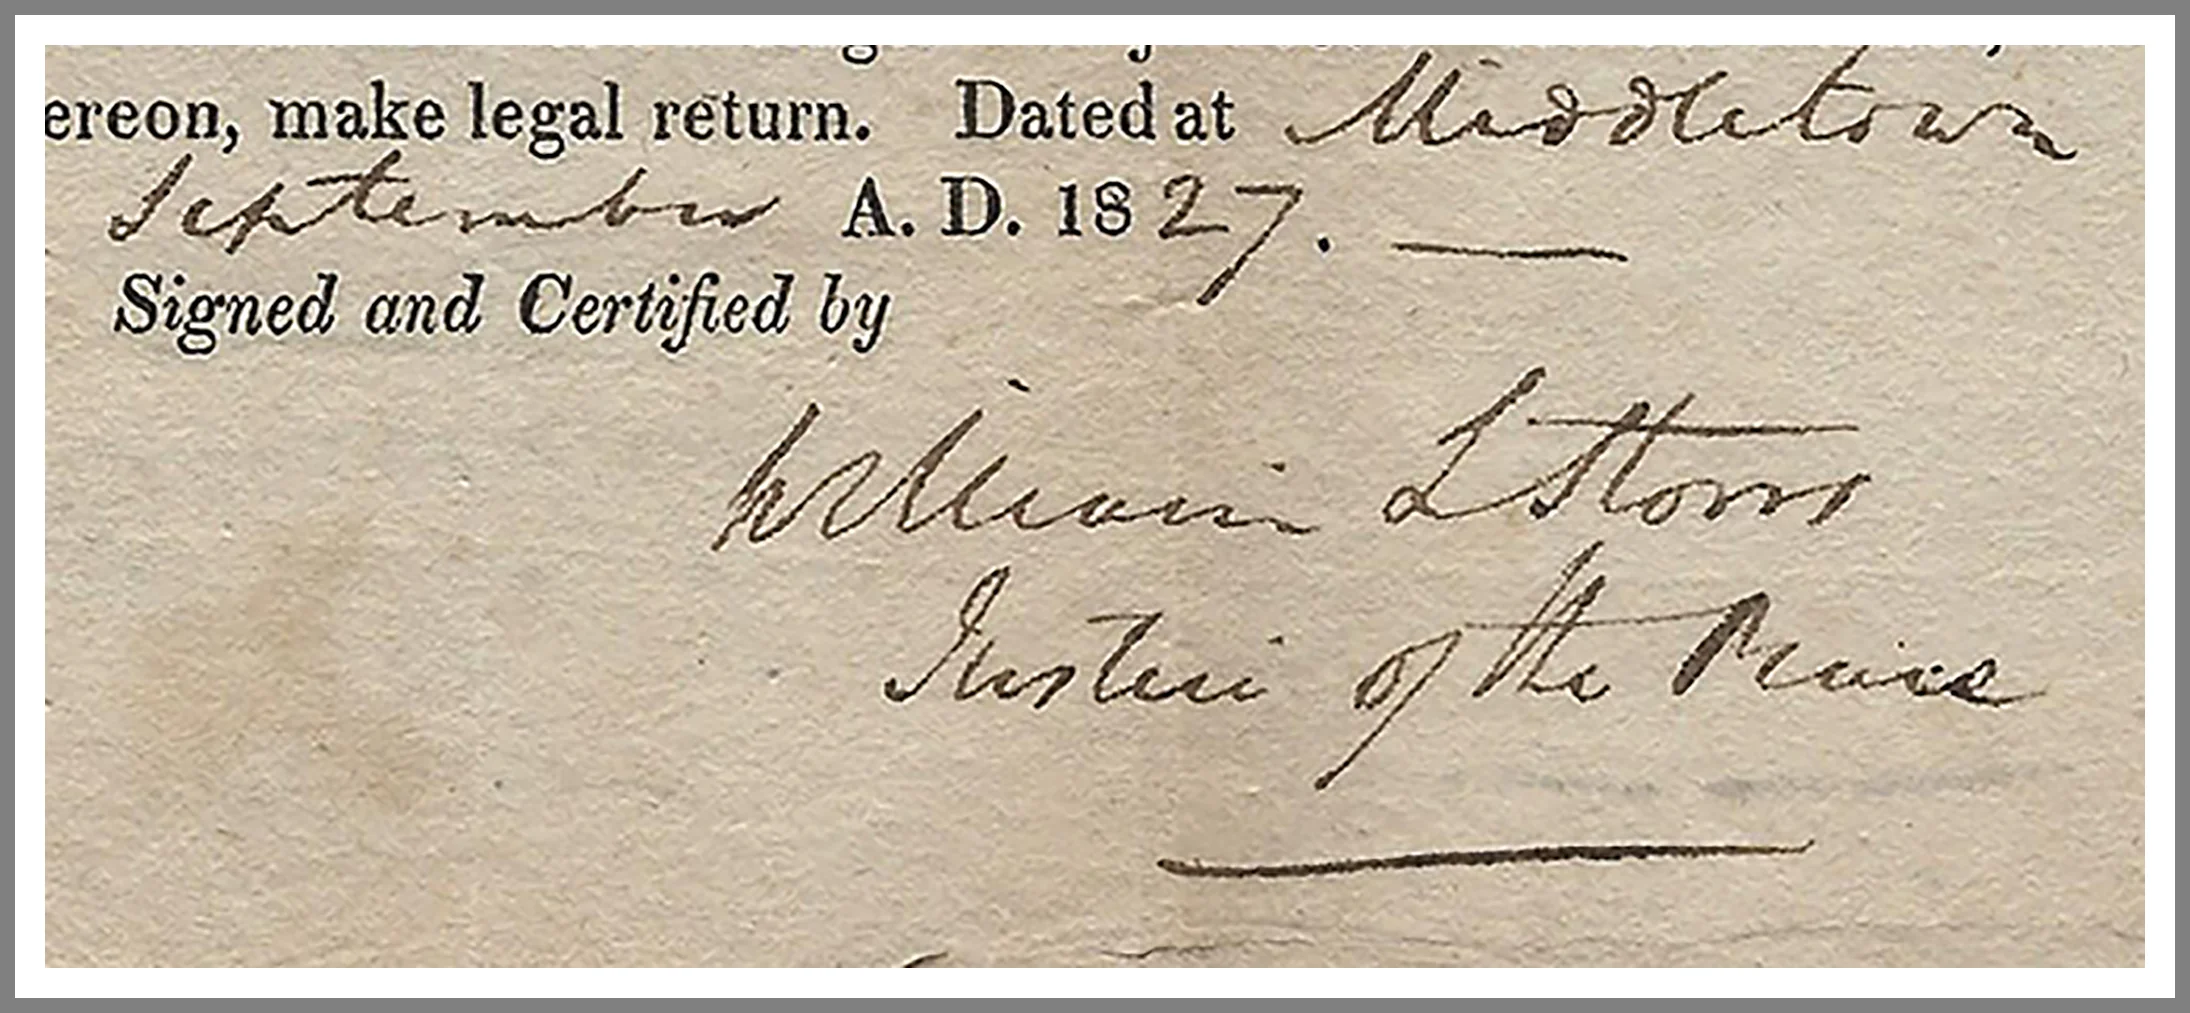 ereon, make legal return. Dated at Middletown
September A. D. 1827.
Signed and Certified by
William L Storrs
Justice of the Peace